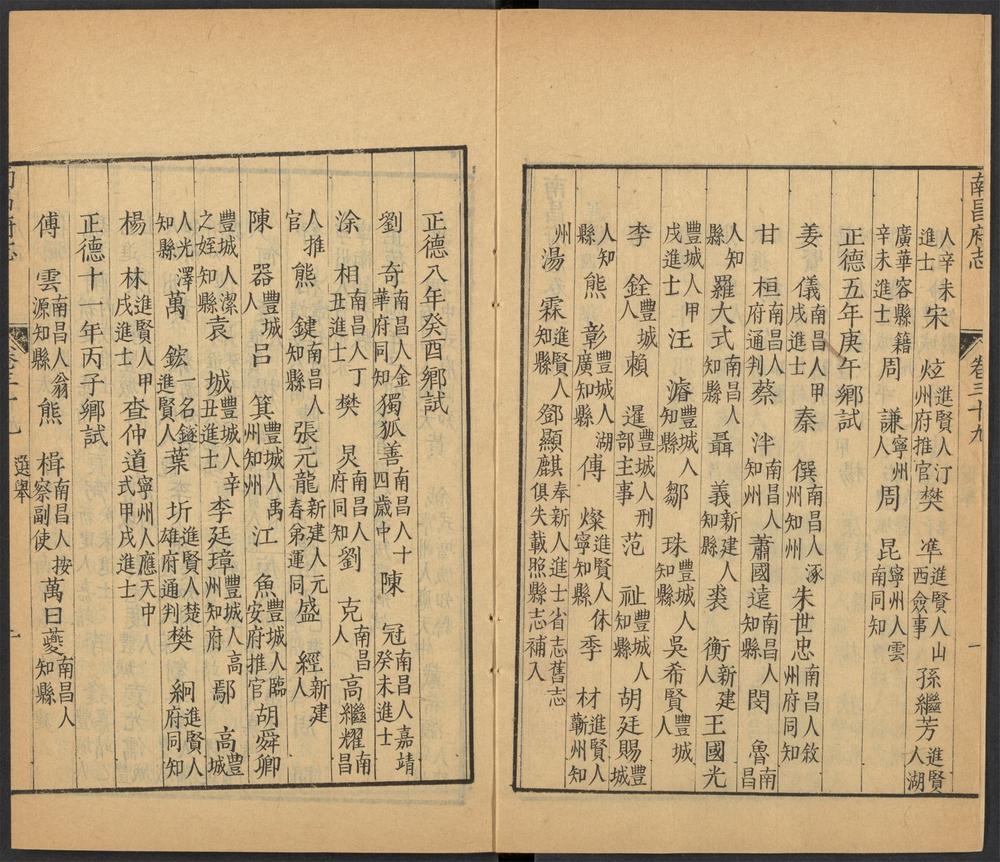 南昌府志 卷三十九 一
人辛未進士 宋炫 進賢人汀州府推官 樊準 進賢人山西僉事 孫繼芳 進賢人湖
廣華容縣籍辛未進士 周謙 寧州人 周昆 寧州人雲南同知
正德五年庚午鄉試
姜儀 南昌人甲戌進士 秦僎 南昌人涿州知州 朱世忠 南昌人敘州府同知
甘桓 南昌人府通判 蔡泮 南昌人知州 蕭國遠 南昌人知縣 閔魯 南昌
人知縣 羅大式 南昌人 聶義 新建人知縣 裘衡 新建人 王國光
豐城人甲戌進士 汪濬 豐城人知縣 鄒珠 豐城人知縣 吳希賢 豐城人
李銓 豐城人 賴暹 豐城人刑部主事 范祉 豐城人知縣 胡廷賜 豐城
人知縣 熊彰 豐城人湖廣知縣 傅燦 進賢人休寧知縣 季材 進賢人蘄州知
州 湯霖 進賢人知縣 鄧顯麒 奉新人進士省志舊志俱失載照縣志補入
正德八年癸酉鄉試
劉奇 南昌人金華府同知 獨狐善 南昌人十四歲中 陳冠 南昌人嘉靖癸未進士
涂相 南昌人丁丑進士 樊炅 南昌人府同知 劉克 南昌人 高繼耀 南昌
人推官 熊鍵 南昌人知縣 張元龍 新建人元春弟運同 盛經 新建人
陳器 豐城人 呂箕 豐城人禹州知州 江魚 豐城人臨安府推官 胡舜卿
豐城人潔之姪知縣 袁城 豐城人辛丑進士 李廷璋 豐城人高州知府 鄢高 豐城
人光澤知縣 萬鋐 一名鐩進賢人 葉圻 進賢人楚雄府通判 樊絅 進賢人府同知
楊林 進賢人甲戌進士 查仲道 寧州人應天中式甲戌進士
正德十一年丙子鄉試
傅雲 南昌人翁源知縣 熊楫 南昌人按察副使 萬日夔 南昌人知縣
選舉